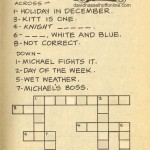 davidhasselhoffonline.com
ACROSS -
1-HOLIDAY IN DECEMBER.
3-KITT IS ONE.
4-KNIGHT _____.
6-___, WHITE AND BLUE.
8-NOT CORRECT.
DOWN -
1-MICHAEL FIGHTS IT.
2-DAY OF THE WEEK.
5-WET WEATHER.
7-MICHAEL'S BOSS.